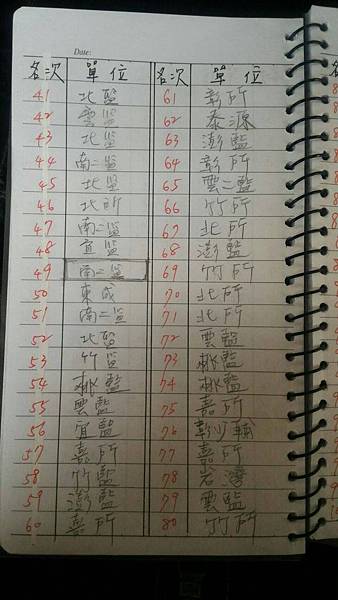 Date:
名次 單位 名次 單位
41 北監 61 彰所
42 雲監 62 泰源
43 北監 63 澎監
44 南二监 64 彰所
45 北监 65 雲二監
46 北所 66 竹所
47 南二监 67 北所
48 宜監 68 澎監
49 南二监 69 竹所
50 東成 70 北所
51 南二监 71 北所
52 北監 72 雲監
53 竹监 73 桃監
54 桃監 74 桃監
55 雲監 75 嘉所
56 宜監 76 彰少輔
57 嘉所 77 嘉所
58 竹監 78 岩灣
59 澎監 79 雲監
60 嘉所 80 竹所